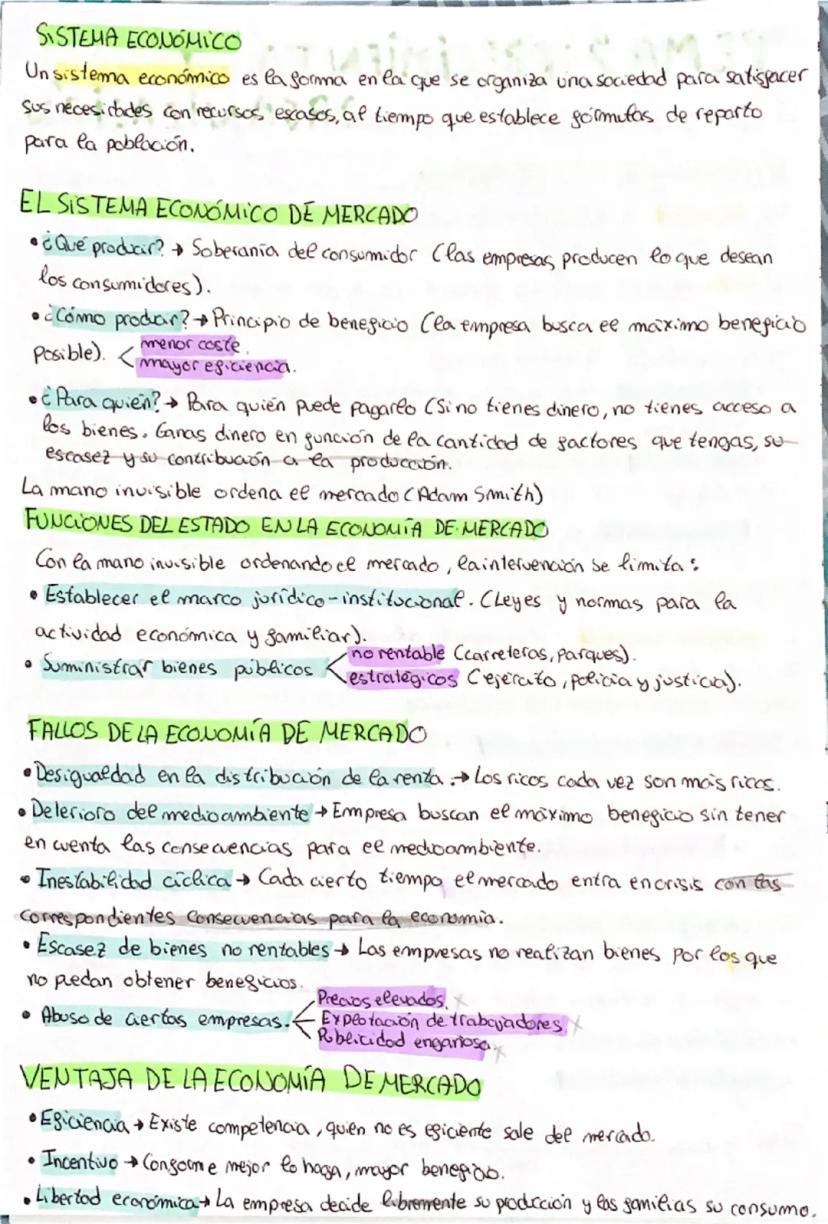 SISTEMA ECONÓMICO
Un sistema económico es la forma en la que se organiza una sociedad para satisfacer
sus necesidades con recursos escasos, al tiempo que establece fórmulas de reparto
para la población.
EL SISTEMA ECONÓMICO DE MERCADO
• ¿Qué producir? → Soberanía del consumidor (las empresas producen lo que desean
los consumidores).
• ¿Cómo producir? → Principio de beneficio (la empresa busca el máximo beneficio
posible). < menor coste.
mayor eficiencia.
• ¿Para quién? → Para quién puede pagarlo (Si no tienes dinero, no tienes acceso a
los bienes. Ganas dinero en función de la cantidad de factores que tengas, su
escasez y su contribución a la producción.
La mano invisible ordena el mercado (Adam Smith)
FUNCIONES DEL ESTADO EN LA ECONOMÍA DE MERCADO
Con la mano invisible ordenando el mercado, la intervención se limita:
• Establecer el marco jurídico-institucional. (Leyes y normas para la
actividad económica y familiar).
• Suministrar bienes públicos < no rentable (carreteras, parques).
estratégicos (ejército, policía y justicia).
FALLOS DE LA ECONOMÍA DE MERCADO
• Desigualdad en la distribución de la renta. → Los ricos cada vez son más ricos.
• Delerioro del medioambiente → Empresa buscan el máximo beneficio sin tener
en cuenta las consecuencias para el medioambiente.
• Inestabilidad cíclica → Cada cierto tiempo el mercado entra en crisis con las
correspondientes consecuencias para la economía.
• Escasez de bienes no rentables → Las empresas no realizan bienes por los que
no puedan obtener beneficios.
• Abuso de ciertas empresas. < Precios elevados. x
Explotación de trabajadores x
Publicidad engañosa x
VENTAJA DE LA ECONOMÍA DE MERCADO
• Eficiencia → Existe competencia, quién no es eficiente sale del mercado.
• Incentivo → Conforme mejor lo haga, mayor beneficio.
• Libertad económica → La empresa decide libremente su producción y las familias su consumo.